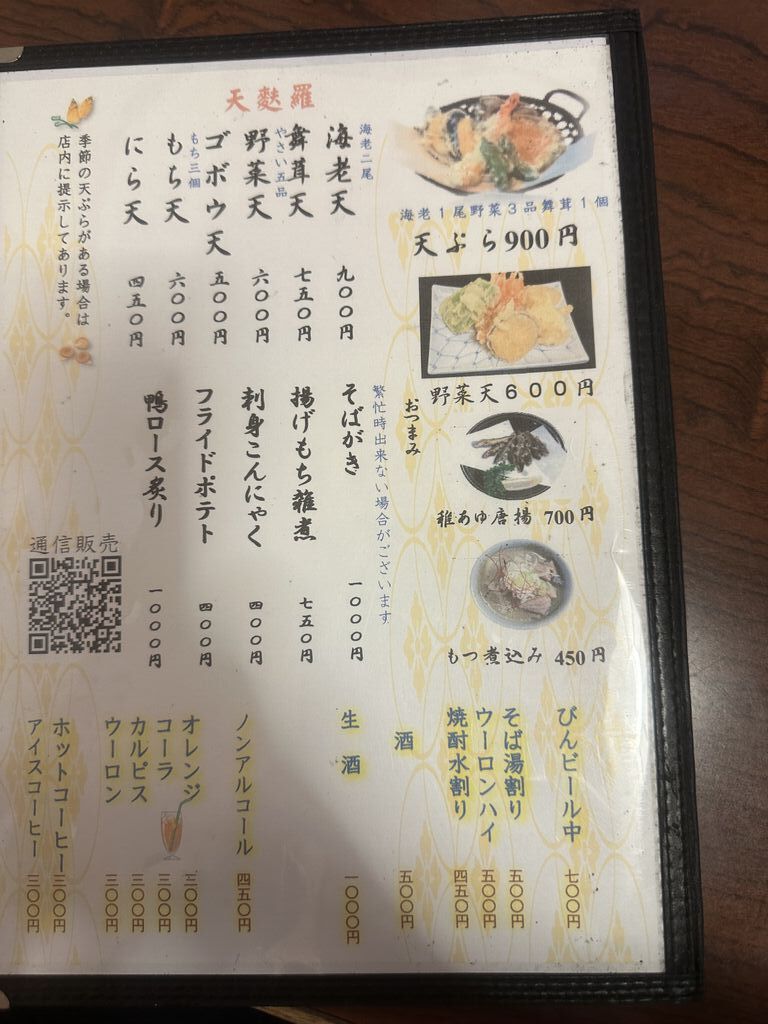 天麩羅
海老1尾野菜3品舞茸1個
天ぷら900円
野菜天600円
海老二尾
海老天 九〇〇円
舞茸天 七五〇円
やさい五品
野菜天 六〇〇円
ゴボウ天 五〇〇円
もち三個
もち天 六〇〇円
にら天 四五〇円
季節の天ぷらがある場合は
店内に提示してあります。
おつまみ
稚あゆ唐揚 700円
もつ煮込み 450円
繁忙時出来ない場合がございます
そばがき 一〇〇〇円
揚げもち雑煮 七五〇円
刺身こんにゃく 四〇〇円
フライドポテト 四〇〇円
鴨ロース炙り 一〇〇〇円
通信販売
びんビール中 七〇〇円
そば湯割り 五〇〇円
ウーロンハイ 五〇〇円
焼酎水割り 四五〇円
酒 五〇〇円
生酒 一〇〇〇円
ノンアルコール 四五〇円
オレンジ 三〇〇円
コーラ 三〇〇円
カルピス 三〇〇円
ウーロン 三〇〇円
ホットコーヒー 三〇〇円
アイスコーヒー 三〇〇円